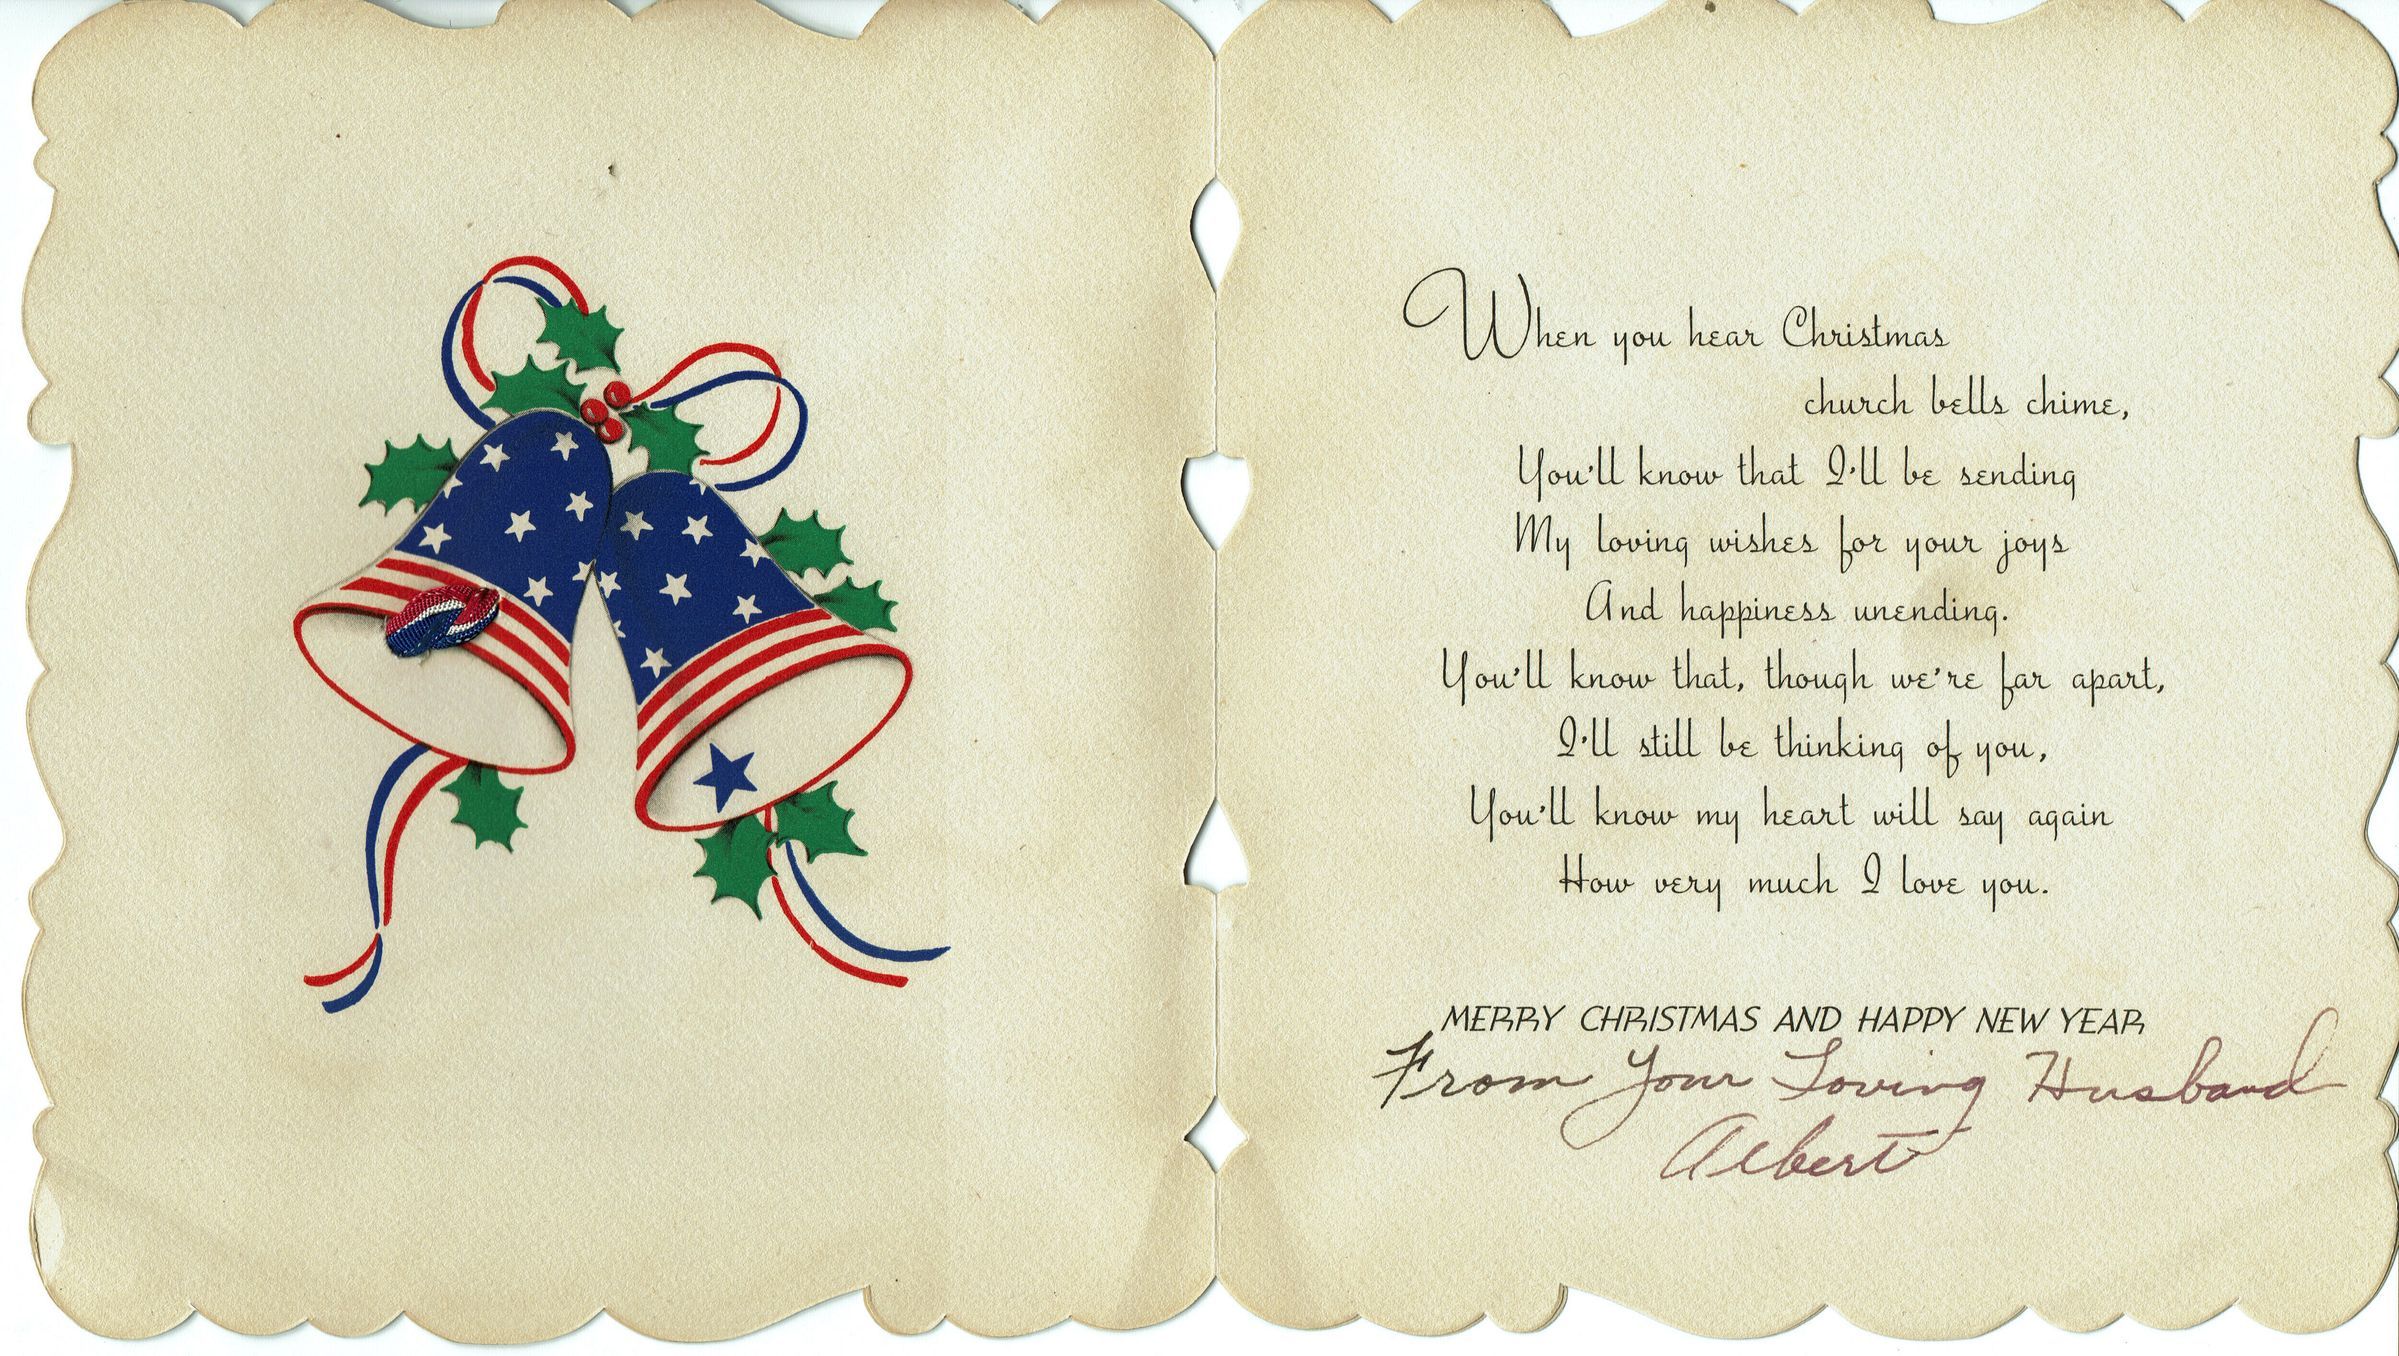 When you hear Christmas
church bells chime,
You'll know that I'll be sending
My loving wishes for your joys
And happiness unending.
You'll know that, though we're far apart,
I'll still be thinking of you,
You'll know my heart will say again
How very much I love you.
MERRY CHRISTMAS AND HAPPY NEW YEAR
From Your Loving Husband
Albert